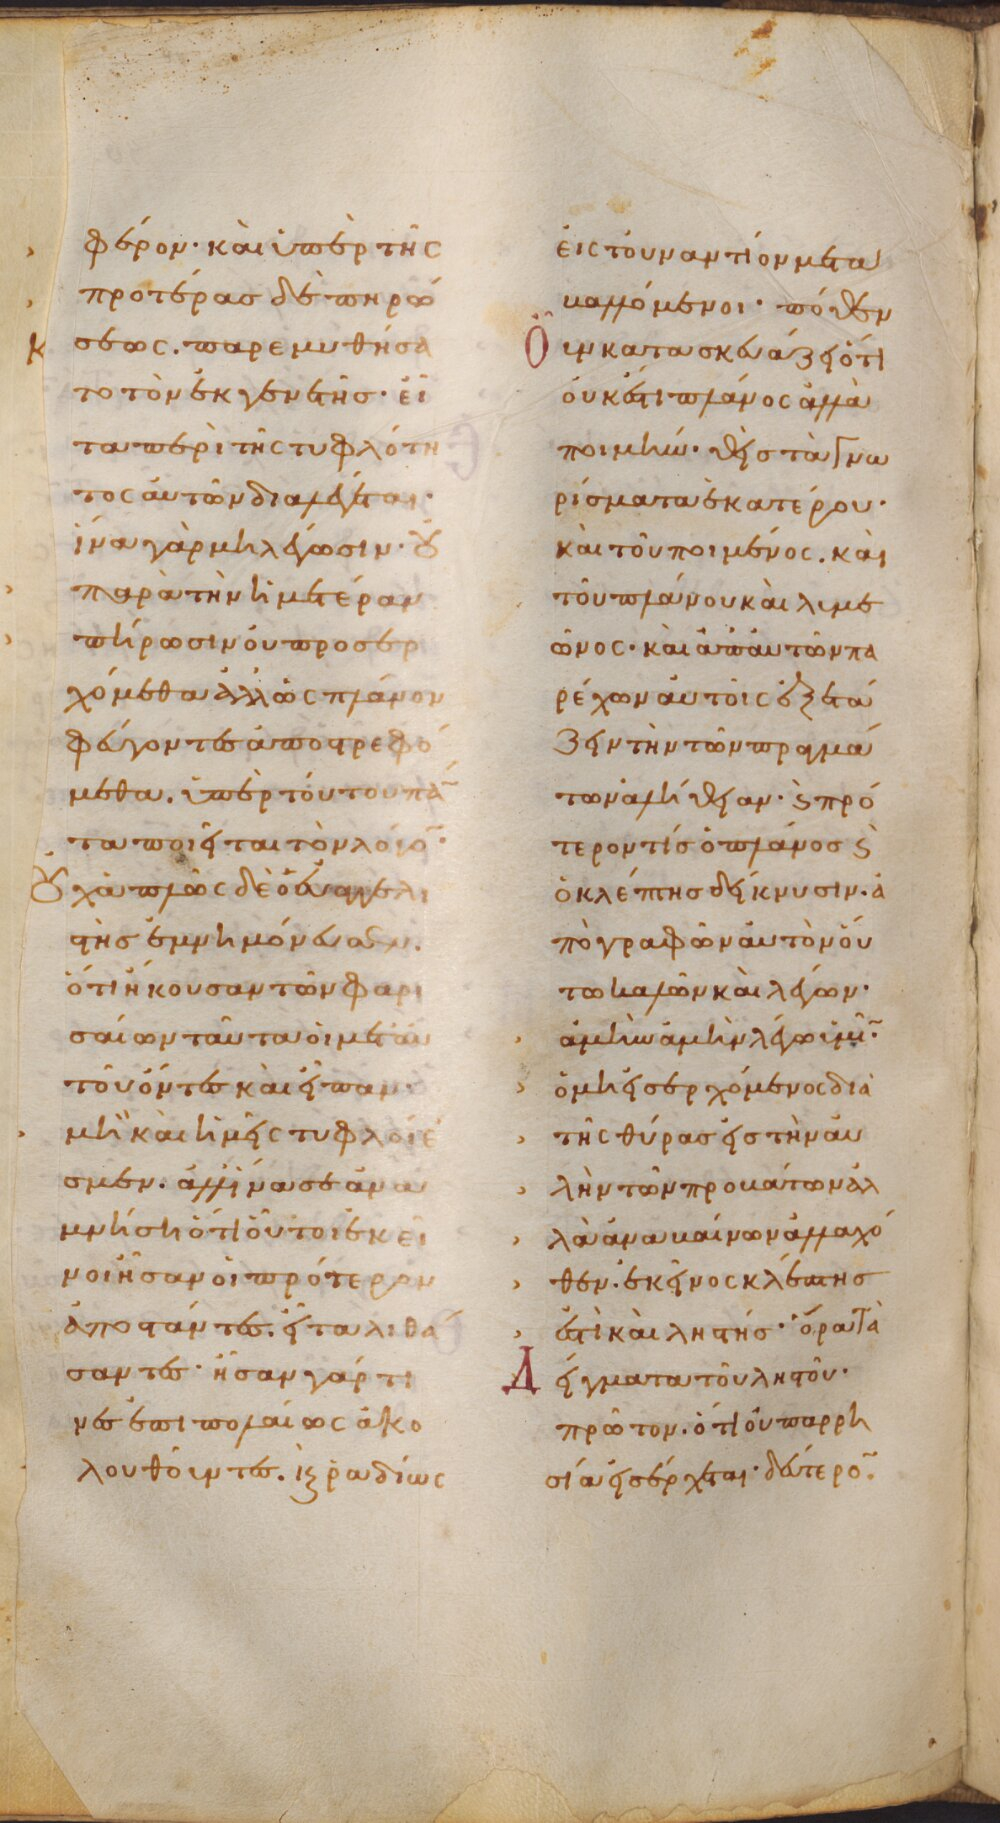 φέρον· καὶ ὑπὲρ τῆς
προτέρας δὲ πηρώ
σεως. παρεμυθήσα
το τὸν ἐκ γενετῆς· εἶ
τα περὶ τῆς τυφλότη
τος αὐτῶν διαλέγεται·
ἵνα γὰρ μὴ λέγωσιν· οὐ
παρὰ τὴν ἡμετέραν
πήρωσιν οὐ προσερ
χόμεθα ἀλλ' ὡς πλάνον
φεύγοντες ἀποστρεφό
μεθα. ὑπὲρ τούτου πά̄
τα ποιεῖται τὸν λόγο̄·
Οὐχ ἁπλῶς δὲ ὁ εὐαγγελι
στὴς ἐμνημόνευσεν.
ὅτι ἤκουσαν τῶν φαρι
σαίων ταῦτα οἱ μετ' αὐ
τοῦ ὄντες καὶ εἶπαν·
μὴ καὶ ἡμεῖς τυφλοί ἐ
σμεν. ἀλλ' ἵνα σε ἀνα
μνήση ὅτι οὗτοι ἐκεῖ
νοι ἦσαν οἱ πρότερον
ἀποστάντες. εἶτα λιθά
σαντες· ἦσαν γάρ τι
νες ἐπιπολαίως ἀκο
λουθοῦντες. καὶ ῥαδίως
εἰς τοὐναντίον μετα
βαλλόμενοι· πόθεν
Οὖν κατασκευάζει ὅτι
οὐκ ἔστι πλάνος ἀλλὰ
ποιμήν· θεὶς τὰ γνω
ρίσματα ἑκατέρου·
καὶ τοῦ ποιμένος. καὶ
τοῦ πλάνου καὶ λυμε
ῶνος· καὶ ἀπ' αὐτῶν πα
ρέχων αὐτοῖς ἐξετά
ζειν τὴν τῶν πραγμά
των ἀλήθειαν· ϗ πρό
τερον τίς ὁ πλάνος ϗ
ὁ κλέπτης δείκνυσιν. ἀ
πὸ γραφῶν αὐτὸν οὕ
τω καλῶν καὶ λέγων·
ἀμὴν ἀμὴν λέγω ὑμῖ̄·
ὁ μὴ εἰσερχόμενος διὰ
τῆς θύρας εἰς τὴν αὐ
λὴν τῶν προβάτων ἀλ
λὰ ἀναβαίνων ἀλλαχό
θεν. ἐκεῖνος κλέπτης
ἐστὶ καὶ ληστής· ὅρα τὰ
Δείγματα τοῦ ληστοῦ·
πρῶτον. ὅτι οὐ παρρη
σία εἰσέρχεται· δεύτερο̄·